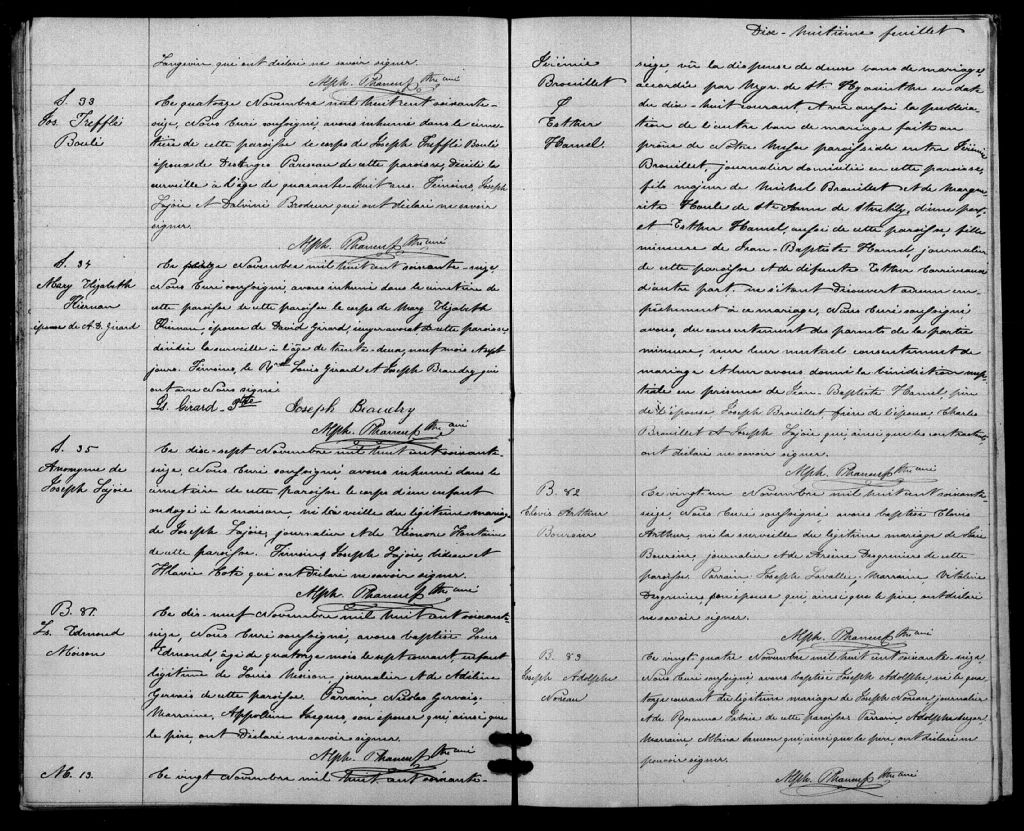 Langevin qui ont déclaré ne savoir signer.
Alph. Phaneuf Ptre curé
S. 33
Jos Trefflé
Boulé
Ce quatorze Novembre mil huit cent soixante-
seize, Nous Curé soussigné, avons inhumé dans le cime-
tière de cette paroisse le corps de Joseph Trefflé Boulé
époux de DesAnges de cette paroisse, décédé la
surveille à l'âge de quarante-huit ans. Témoins, Joseph
Lajoie et Brodeur qui ont déclaré ne savoir
signer.
Alph. Phaneuf Ptre curé
S. 34
Mary Elizabeth
Kiernan
épouse de A. D. Girard
Ce Novembre mil huit cent soixante-seize
Nous Curé soussigné, avons inhumé dans le cimetière de
cette paroisse le corps de Mary Elizabeth
Kiernan, épouse de David Girard, de cette paroisse
décédée la surveille à l'âge de trente-deux, neuf mois &
jours. Témoins, le Louis Girard et Joseph Beaudry qui
ont avec Nous signé
Ls. Girard Ptre Joseph Beaudry
Alph. Phaneuf Ptre curé
S. 35
Anonyme de
Joseph Lajoie
Ce dix-sept Novembre mil huit cent soixante-
seize, Nous Curé soussigné, avons inhumé dans le
cimetière de cette paroisse le corps d'un enfant
ondoyé à la maison, né la veille du légitime mariage
de Joseph Lajoie, journalier et de Eléonore Fontaine
de cette paroisse. Témoins, Joseph Lajoie, bedeau et
Flavie Coté qui ont déclaré ne savoir signer.
Alph. Phaneuf Ptre curé
B. 81
Ls. Edmond
Moison
Ce dix-neuf Novembre mil huit cent soixante-
seize, Nous Curé soussigné, avons baptisé Louis
Edmond, âgé de quatorze mois le sept courant, enfant
légitime de Louis Moison, journalier et de Adéline
Gervais de cette paroisse. Parrain, Nicolas Gervais.
Marraine, Appoline Jacques, son épouse qui, ainsi que
le père, ont déclaré ne savoir signer.
Alph. Phaneuf Ptre curé
M. 13.
Ce vingt Novembre mil huit cent soixante-
Dix-huitième feuillet
Jérémie
Brouillet
&
Esther
Hamel
seize, vû la dispense de deux bans de mariage
accordée par Mgr. de St. Hyacinthe en date
du dix-huit courant et vû aussi la publica-
tion de l'autre ban de mariage faite au
prône de Notre Messe paroissiale entre Jérémie
Brouillet, journalier domicilié en cette paroisse,
fils majeur de Michel Brouillet et de Margue-
rite Houle de Ste Anne de d'une part,
et Esther Hamel, aussi de cette paroisse, fille
mineure de Jean-Baptiste Hamel, journalier
de cette paroisse et de défunte Esther
d'autre part, ne s'étant découvert aucun em-
pêchement à ce mariage, Nous Curé soussigné
avons, du consentement des parents de la partie
mineure, reçu leur mutuel consentement de
mariage et leur avons donné la bénédiction nup-
tiale en présence de Jean-Baptiste Hamel, père
de l'épouse, Joseph Brouillet frère de l'époux, Charles
Brouillet et Joseph Lajoie qui, ainsi que les contractants
ont déclaré ne savoir signer.
Alph. Phaneuf Ptre curé
B. 82
Clovis Arthur
Ce vingt-un Novembre mil huit cent soixante-
seize, Nous Curé soussigné, avons baptisé Clovis
Arthur, né la surveille du légitime mariage de
journalier et de Desgreniers de cette
paroisse. Parrain Joseph Lavallée. Marraine Vitaline
Desgreniers, son épouse qui, ainsi que le père, ont déclaré
ne savoir signer.
Alph. Phaneuf Ptre curé
B. 83
Joseph Adolphe
Noreau
Ce vingt-quatre Novembre mil huit cent soixante-seize,
Nous Curé soussigné, avons baptisé Joseph Adolphe, né le qua-
torze courant du légitime mariage de Joseph Noreau journalier
et de Rosanna de cette paroisse. Parrain Adolphe
Marraine, qui, ainsi que le père, ont déclaré ne
pouvoir signer.
Alph. Phaneuf Ptre curé